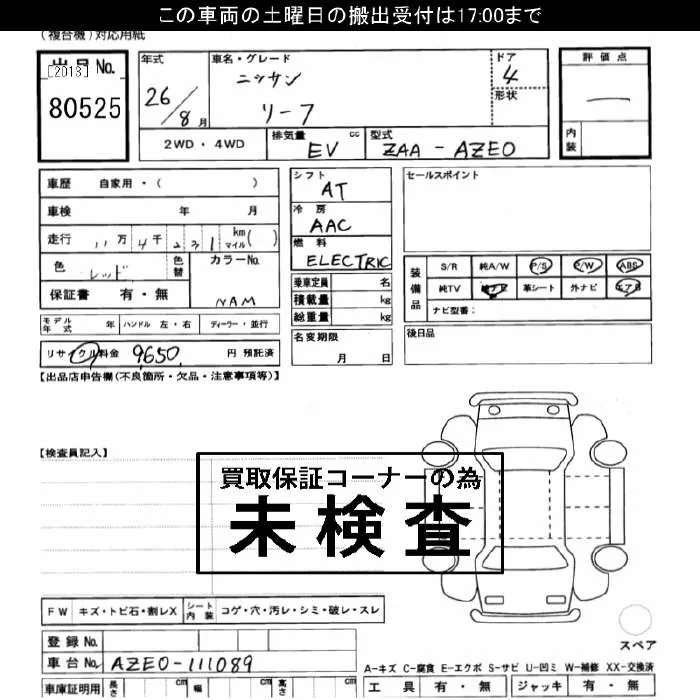 この車両の土曜日の搬出受付は17:00まで
(複合機)対応用紙
出品No.
[2013]
80525
年式
26/8月
車名・グレード
ニッサン
リーフ
ドア
4
形状
評価点
内装
2WD・4WD
排気量 cc
EV
型式
ZAA-AZE0
車歴 自家用・( )
車検 年 月
走行 11万4千231 km マイル( )
色 レッド
色替
カラーNo.
NAM
保証書 有・無
シフト
AT
冷房
AAC
燃料
ELECTRIC
乗車定員 名
積載量 kg
総重量 kg
名変期限
月 日
セールスポイント
装備品
S/R 純A/W P/S P/W ABS
純TV 純ナビ 革シート 外ナビ エアB
ナビ型番:
後日品
モデル年式 年 ハンドル 左・右 ディーラー・並行
リサイクル料金 9,650 円 預託済
【出品店申告欄(不良箇所・欠品・注意事項等)】
【検査員記入】
買取保証コーナーの為
未検査
FW キズ・トビ石・割レX シート内装 コゲ・穴・汚レ・シミ・破レ・スレ
登録No.
車台No. AZE0-111089
車庫証明用 長さ cm 幅 cm 高さ cm
スペア
A-キズ C-腐食 E-エクボ S-サビ U-凹ミ W-補修 XX-交換済
工具 有・無 ジャッキ 有・無